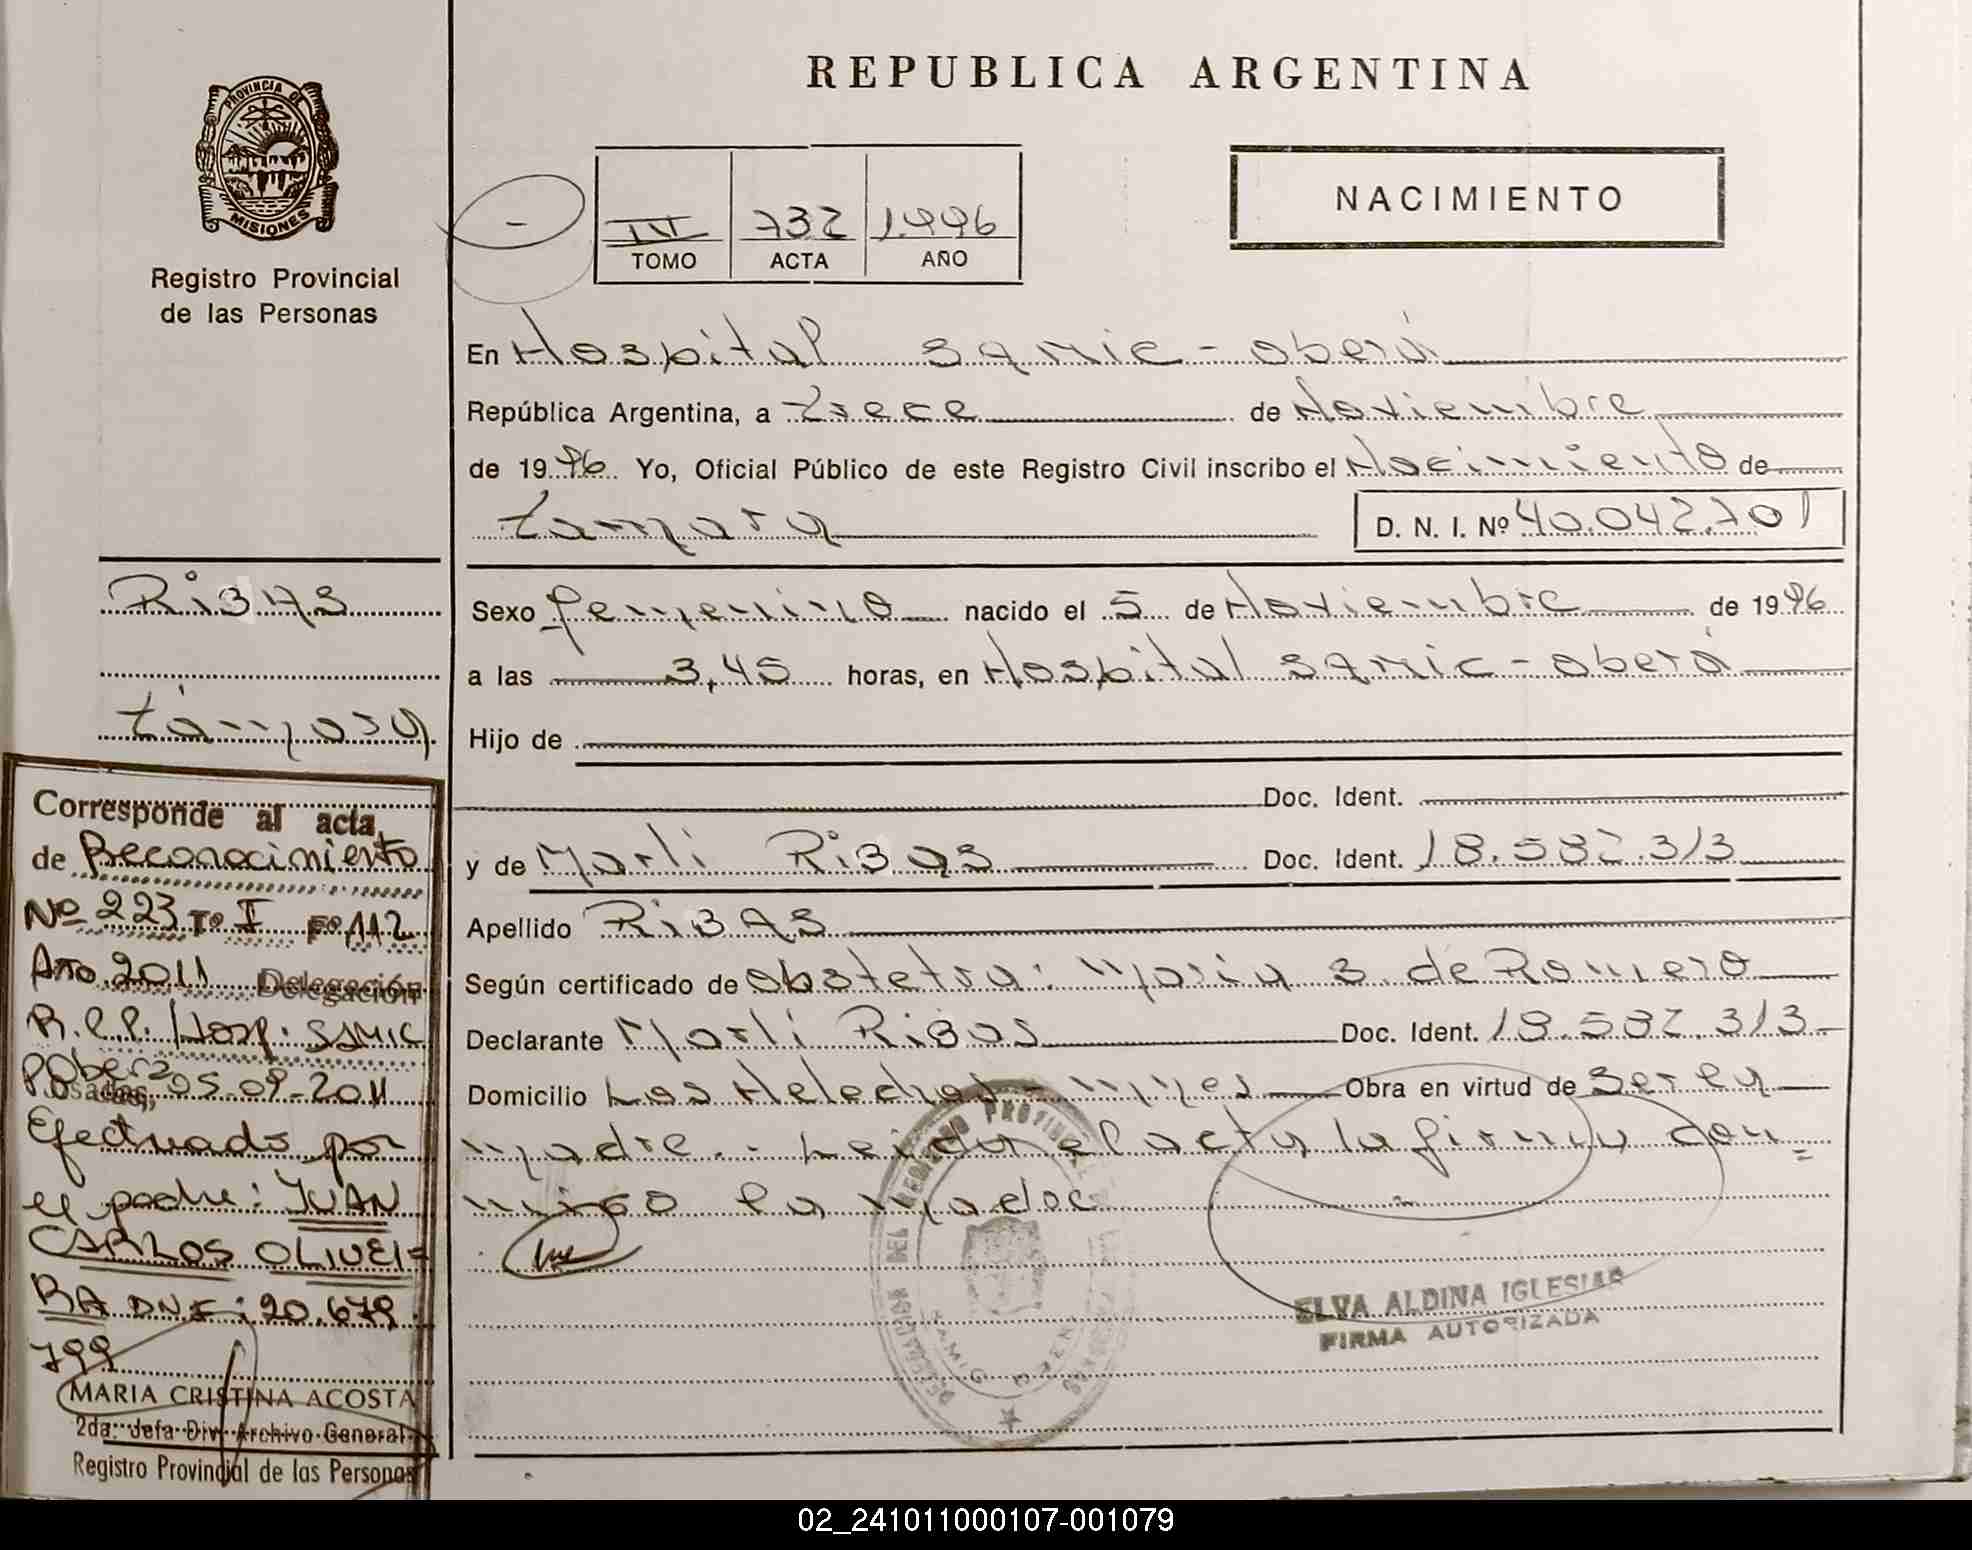 PROVINCIA DE
MISIONES
Registro Provincial
de las Personas
REPUBLICA ARGENTINA
NACIMIENTO
IV 732 1.996
TOMO ACTA AÑO
En Hospital SAMIC - Oberá
República Argentina, a Trece de Noviembre
de 19 96 Yo, Oficial Público de este Registro Civil inscribo el Nacimiento de
Tamara D. N. I. Nº 40.042.701
Ribas
Tamara
Sexo femenino nacido el 5 de Noviembre de 19 96
a las 3,45 horas, en Hospital SAMIC - Oberá
Hijo de
Doc. Ident.
y de Marli Ribas Doc. Ident. 18.582.313
Apellido RiBAS
Según certificado de obstetra: Maria S. de Romero
Declarante Marli Ribas Doc. Ident. 18.582.313
Domicilio Los Helechos - Mnes Obra en virtud de Ser la
madre. - Leida el acta la firma con=
migo la madre
ELVA ALDINA IGLESIAS
FIRMA AUTORIZADA
Corresponde al acta
de Reconocimiento
Nº 223 Tº I Fº 112
Año 2011 Delegación
R.P.P. Hosp. SAMIC
Oberá
Posadas, 05-09-2011
Efectuado por
el padre: JUAN
CARLOS OLIVEI=
RA DNI: 20.679.
799
MARIA CRISTINA ACOSTA
2da. Jefa Div. Archivo General
Registro Provincial de las Personas
02_241011000107-001079